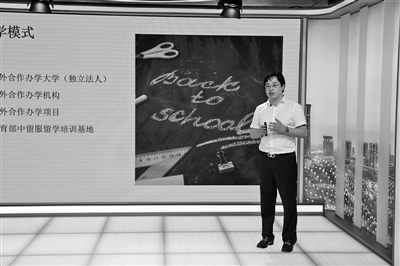 学模式
外合作办学大学（独立法人）
外合作办学机构
外合作办学项目
育部中留服留学培训基地
Back
to
school